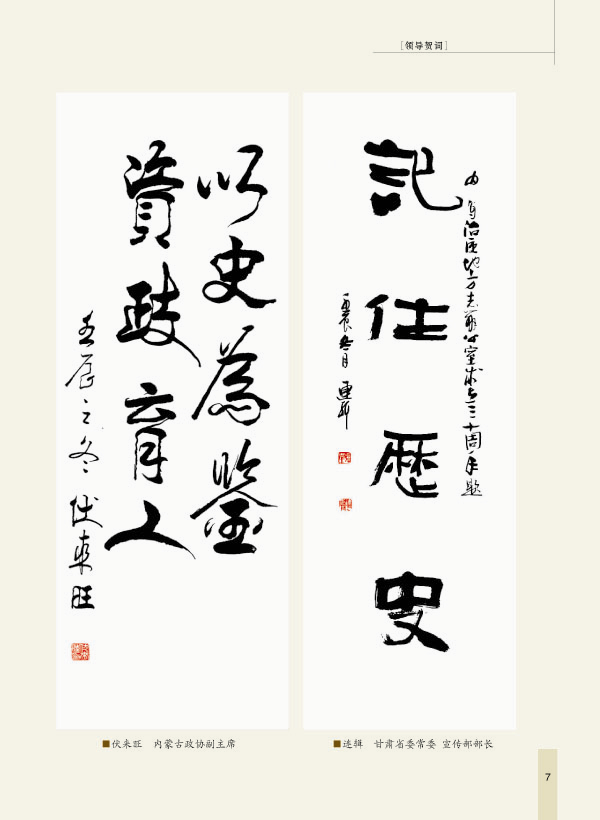 [领导贺词]
以史為鑒
資政育人
壬辰之冬 伏来旺
治区地方志
十周年题
記住歷史
壬辰冬月 连辑
■伏来旺 内蒙古政协副主席
■连辑 甘肃省委常委 宣传部部长
7